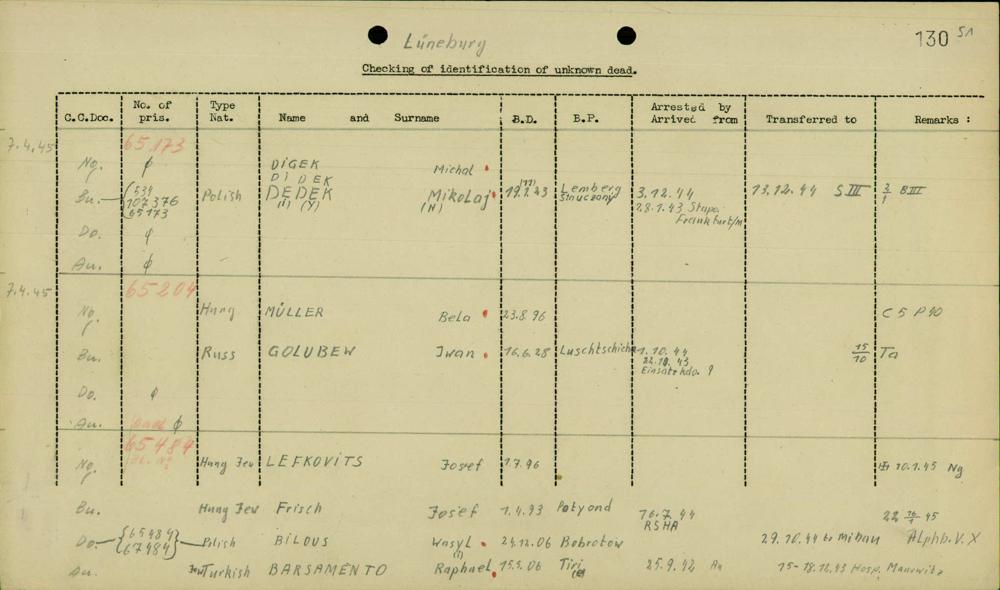 Lüneburg
130 51
Checking of identification of unknown dead.
C.C.Doc. No. of pris. Type Nat. Name and Surname B.D. B.P. Arrested by Arrived from Transferred to Remarks :
7.4.45 65173
Ng. ϕ DIGEK Michal
DIDEK
Bu. 534 107376 65173 Polish DEDEK Mikolaj 19.1.43 Lemberg 3.12.44 13.12.44 S III 3/1 B III
(I) (Y) (N) (11) 28.1.43 Stapo Frankfurt/M
Do. ϕ
Au. ϕ
7.4.45 65204
Ng. Hung MÜLLER Bela 23.8.96 C 5 P 40
Bu. Russ GOLUBEW Iwan 16.6.28 1.10.44 15/10 Ta
22.10.43
Einsatzkdo. 9
Do. ϕ
Au. ϕ
65484
Ng. Hung Jew LEFKOVITS Josef 1.7.96 10.1.45 Ng
Bu. Hung Jew Frisch Josef 1.4.93 Patyond 16.7.44 RSHA 22 45
Do. 65484 67484 Polish BILOUS Wasyl 24.12.06 Bobrotow 29.10.44 to Mibau Alphb. V. X
(I)
Au. Jew Turkish BARSAMENTO Raphael 15.5.06 Tiri 25.9.42 Au 15-18.12.43 Hosp. Manowitz